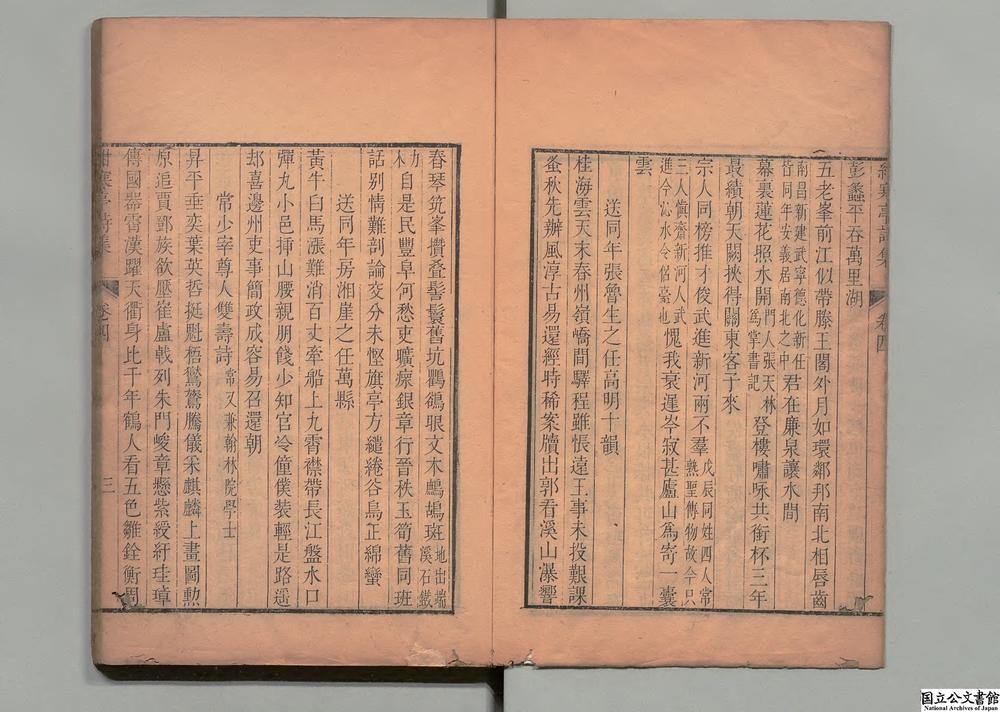 彭蠡平吞萬里湖
五老峯前江似帶滕王閣外月如環鄰邦南北相唇齒
南昌新建武寧德化新任
皆同年安義居南北之中
君在廉泉讓水間
幕裏蓮花照水開
門人張天林
爲掌書記
登樓嘯咏共銜杯三年
最績朝天闕挾得關東客子來
宗人同榜推才俊武進新河兩不羣
戊辰同姓四人常
熟聖傳物故今只
三人愼齋新河人武
進今沁水令侶臺也
愧我衰遲岑寂甚廬山爲寄一囊
雲
送同年張魯生之任高明十韻
桂海雲天末春州嶺嶠間驛程雖悵遠王事未投艱課
蚕秋先辦風淳古易還經時稀案牘出郭看溪山瀑響
春琴筑峯攢叠髻鬟舊坑鸜鵒眼文木鷓鴣斑
地出端
溪石鐵
力
木
自是民豐阜何愁吏曠瘝銀章行晉秩玉筍舊同班
話别情難剖論交分未慳旗亭方繾綣谷鳥正綿蠻
送同年房湘崖之任萬縣
黃牛白馬漲難消百丈牽船上九霄襟帶長江盤水口
彈丸小邑揷山腰親朋餞少知官冷僮僕裝輕是路遥
却喜邊州吏事簡政成容易召還朝
常少宰尊人雙壽詩
常又兼翰林院學士
昇平垂奕葉英哲挺魁梧鸞鷟騰儀采麒麟上畫圖勲
原追賈鄧族欲壓崔盧戟列朱門峻章懸紫綬紆珪璋
傳國器霄漢躍天衢身比千年鶴人看五色雛銓衡周
卷四
三
国立公文書館
National Archives of Japan